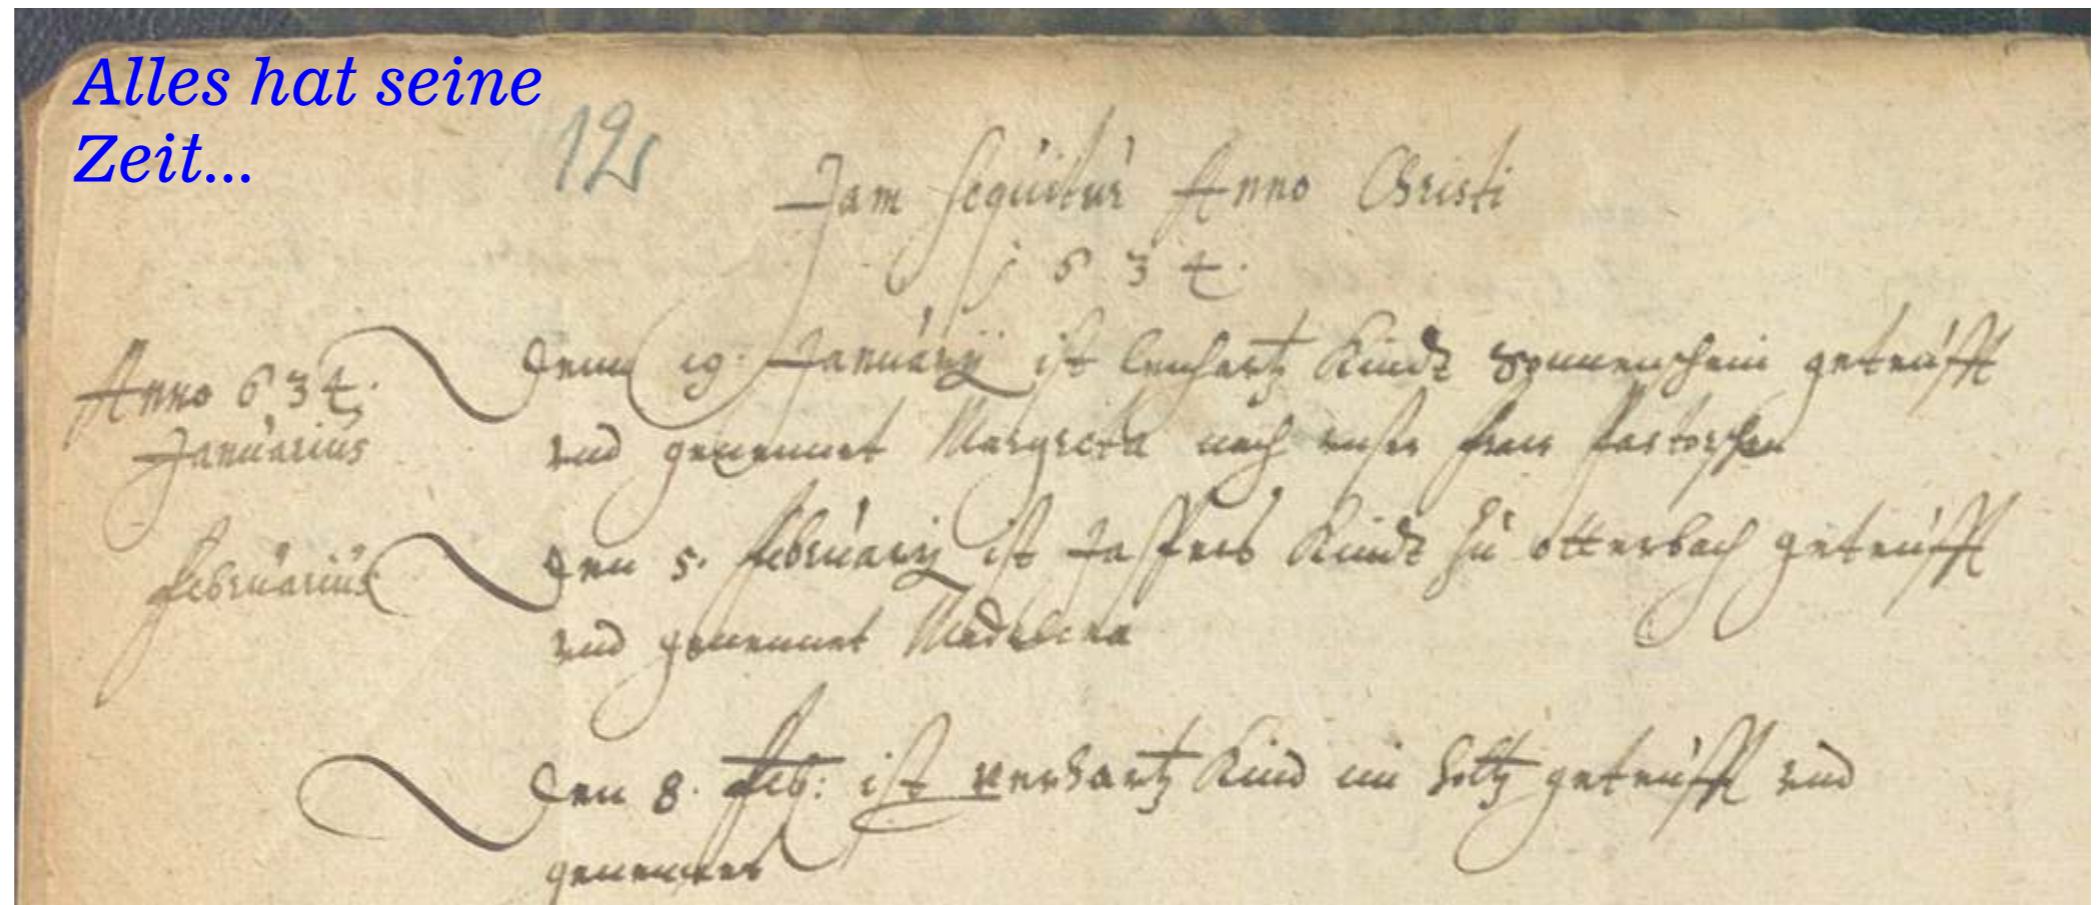 Alles hat seine
Zeit...
12
Jam sequitur Anno Christi
1634.
Anno 634.
Januarius
Denn 19. Januarij ist Lenhartz Kindt Sonnenschein geteufft
vnd genennet Margreta nach vnser frau Pastorschen
Februarius
Den 5. Februarij ist Jaspers Kindt zu Otterbach geteufft
vnd genennet Madalena
Den 8. Feb: ist Kind im Holtz geteufft vnd
genennet